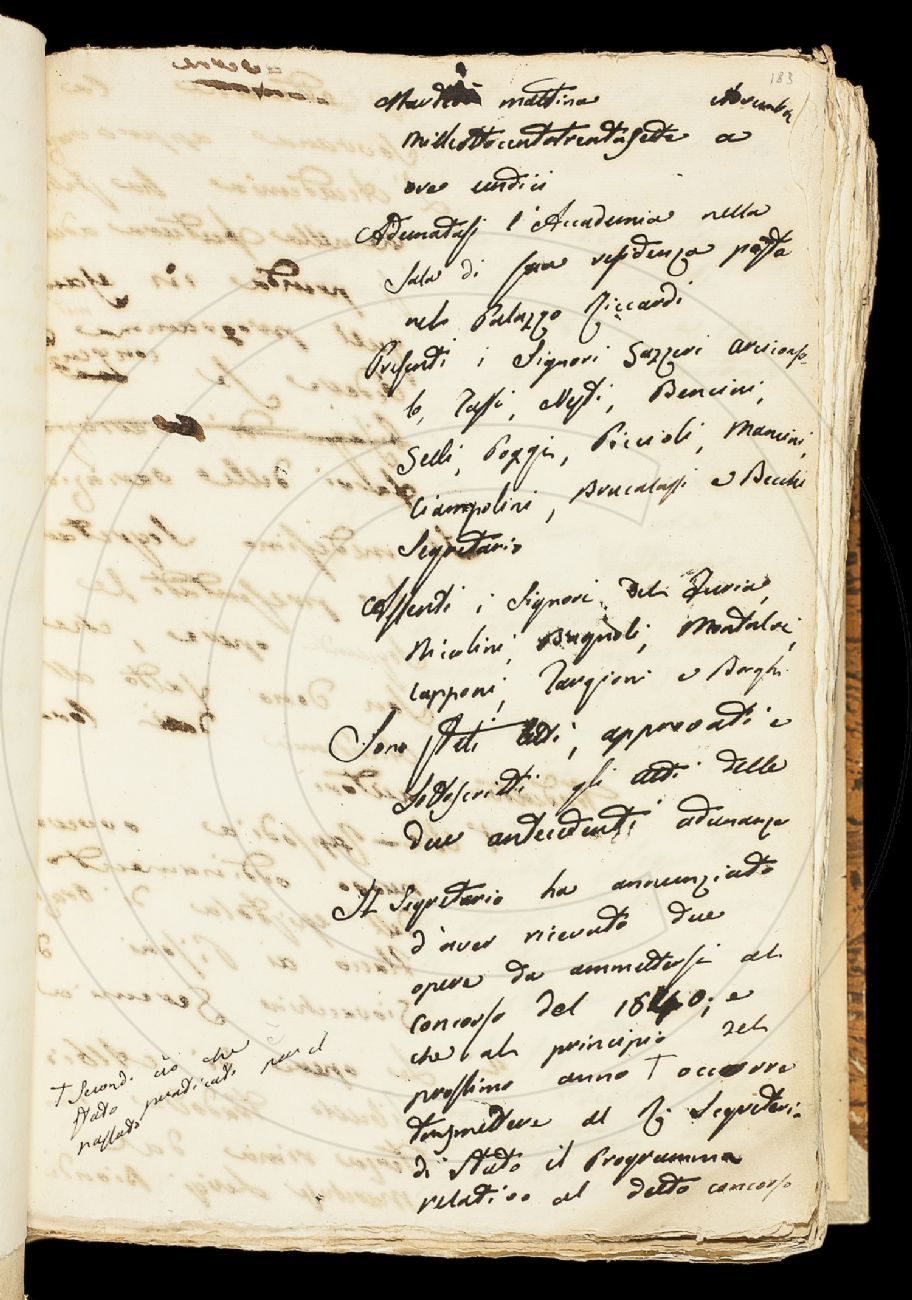 183
mattina Novembre
Milleottocentotrentasette a
ore undici
Adunatasi l'Accademia nella
Sala di sua residenza posta
nel Palazzo Riccardi
Presenti i Signori Gazzeri Arciconso-
lo, Tassi, Nesti, Bencini,
Selli, Poggi, Piccioli, Mancini,
Ciampolini, Brucalassi e Becchi
Segretario
Assenti i Signori Del Furia,
Nicolini, Bagnoli, Montalvi,
Capponi, Targioni e Borghi
Sono stati letti, approvati e
sottoscritti gli atti delle
due antecedenti adunanze
Il Segretario ha annunziato
d'aver ricevuto due
opere da ammettersi al
concorso del 1840; e
che al principio del
prossimo anno † occorre
trasmettere al R. Segretario
di Stato il Programma
relativo al detto concorso
† Secondo ciò che è
stato praticato per il
passato